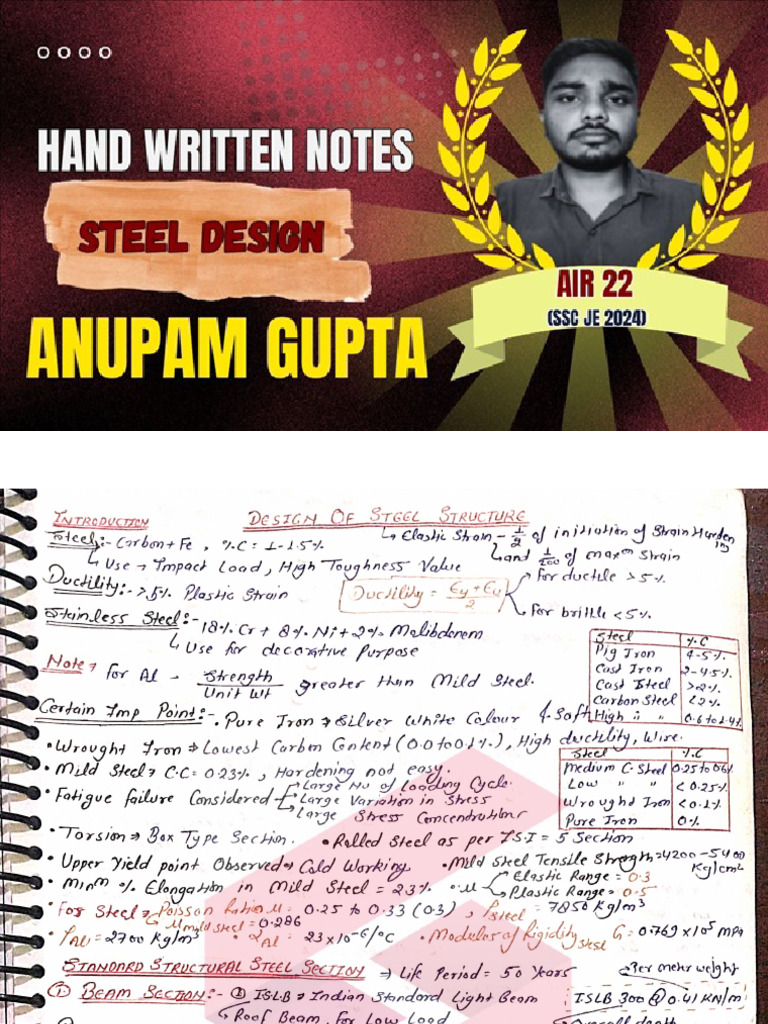 HAND WRITTEN NOTES
STEEL DESIGN
ANUPAM GUPTA
AIR 22
(SSC JE 2024)
INTRODUCTION
DESIGN OF STEEL STRUCTURE
Steel:- Carbon + Fe, %C = 1-1.5%
↳ Elastic Strain - 1/2 of initiation of Strain Hardening
↳ and 1/200 of maxm Strain
↳ Use → Impact Load, High Toughness Value
Ductility:- >5% Plastic Strain
Ductility = (Ey + Eu)/2
For ductile >5%
For brittle <5%
Stainless Steel:- 18% Cr + 8% Ni + 2% Molibdenem
↳ Use for decorative Purpose
Note → For Al - Strength/Unit Wt greater than Mild Steel.
Steel | %C
Pig Iron | 4-5%
Cast Iron | 2-4.5%
Cast Steel | >2%
Carbon Steel | <2%
High " " | 0.6 to 1.4%
Certain Imp Point:- • Pure Iron → Silver White Colour & Soft
• Wrought Iron → Lowest Carbon Content (0.0 to 0.1%), High ductility, Wire.
• Mild Steel → C.C = 0.23%, Hardening not easy.
• Fatigue failure Considered
Large No of Loading Cycle.
Large Variation in Stress
Large Stress Concentrations
Steel | %C
Medium C. Steel | 0.25 to 0.6%
Low " " | <0.25%
Wrought Iron | <0.1%
Pure Iron | 0%
• Torsion → Box Type Section. • Rolled Steel as per I.S.I = 5 Section
• Upper Yield point Observed → Cold Working • Mild Steel Tensile Strength = 4200-5400 Kg/cm2
• Minm % Elongation in Mild Steel = 23% • μ
Elastic Range = 0.3
Plastic Range = 0.5
• For Steel → Poisson Ratio μ = 0.25 to 0.33 (0.3), ρsteel = 7850 Kg/m3
μ mild steel = 0.286
• ρAl = 2700 Kg/m3 • αAl = 23×10-6/°C • Modulus of Rigidity Steel G = 0.769×105 MPa
STANDARD STRUCTURAL STEEL SECTION → Life Period = 50 Years
Per metr weight
① BEAM SECTION:- ① ISLB → Indian Standard Light Beam
ISLB 300 @ 0.41 KN/m
↳ Roof Beam, For Low Load
Overall depth